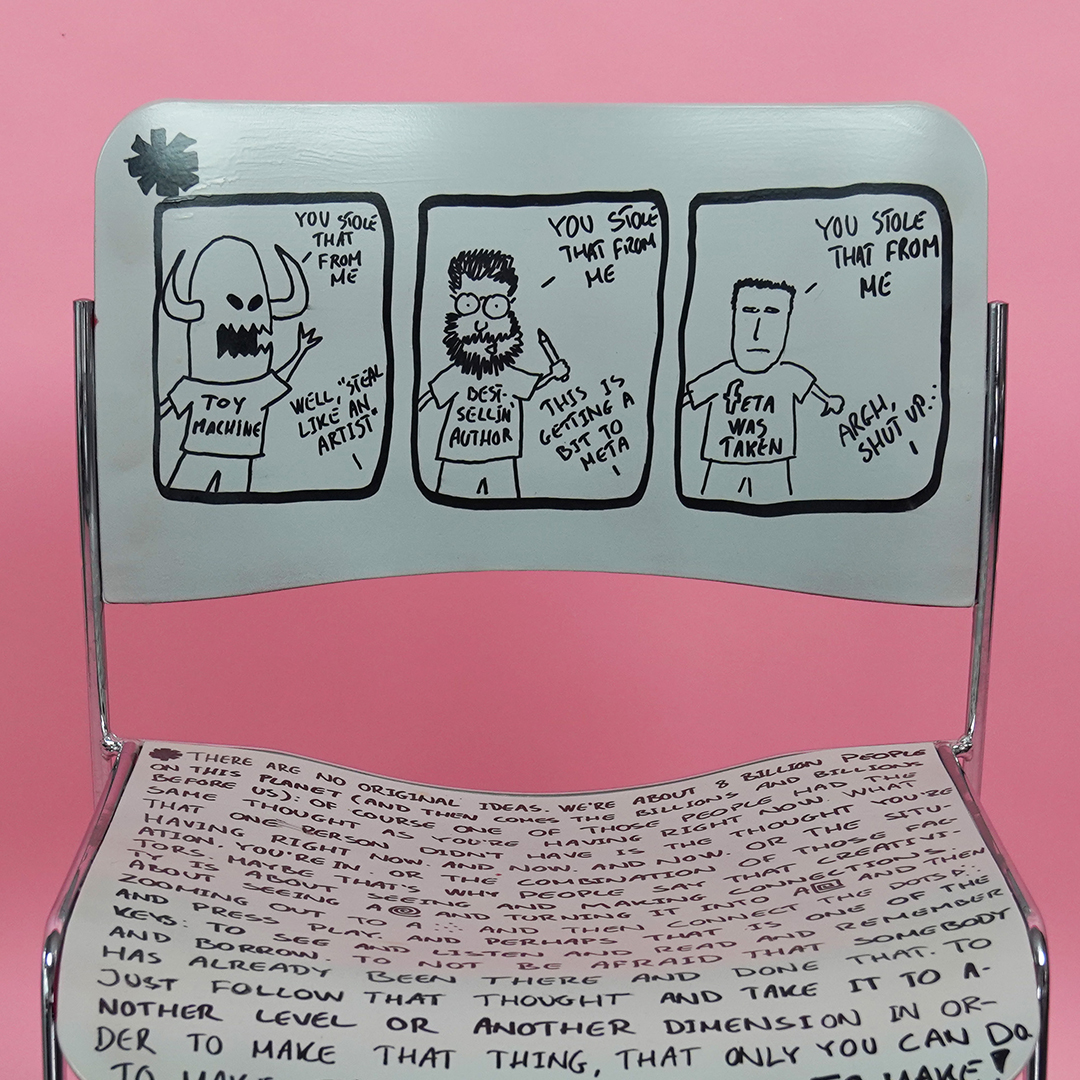 YOU STOLE
THAT
FROM
ME
TOY
MACHINE
WELL, "STEAL
LIKE AN
ARTIST"
YOU STOLE
THAT FROM
ME
BEST-
SELLIN'
AUTHOR
THIS IS
GETTING A
BIT TO
META
YOU STOLE
THAT FROM
ME
FETA
WAS
TAKEN
ARGH,
SHUT UP..
THERE ARE NO ORIGINAL IDEAS. WE'RE ABOUT 8 BILLION PEOPLE
ON THIS PLANET (AND THEN COMES THE BILLIONS AND BILLIONS
BEFORE US): OF COURSE ONE OF THOSE PEOPLE HAD THE
SAME THOUGHT AS YOU'RE HAVING RIGHT NOW. WHAT
THAT ONE PERSON DIDN'T HAVE IS THE THOUGHT YOU'RE
HAVING RIGHT NOW. AND NOW. AND NOW. OR THE SITU-
ATION. YOU'RE IN. OR THE COMBINATION OF THOSE FAC-
TORS. MAYBE THAT'S WHY PEOPLE SAY THAT CREATIVI-
TY IS ABOUT SEEING AND MAKING CONNECTIONS.
ABOUT SEEING A AND TURNING IT INTO A AND THEN
ZOOMING OUT TO A AND THEN CONNECT THE DOTS
AND PRESS PLAY. AND PERHAPS THAT IS ONE OF THE
KEYS: TO SEE AND LISTEN AND READ AND REMEMBER
AND BORROW. TO NOT BE AFRAID THAT SOMEBODY
HAS ALREADY BEEN THERE AND DONE THAT. TO
JUST FOLLOW THAT THOUGHT AND TAKE IT TO A-
NOTHER LEVEL OR ANOTHER DIMENSION IN OR-
DER TO MAKE THAT THING, THAT ONLY YOU CAN DO
TO MAKE TO MAKE